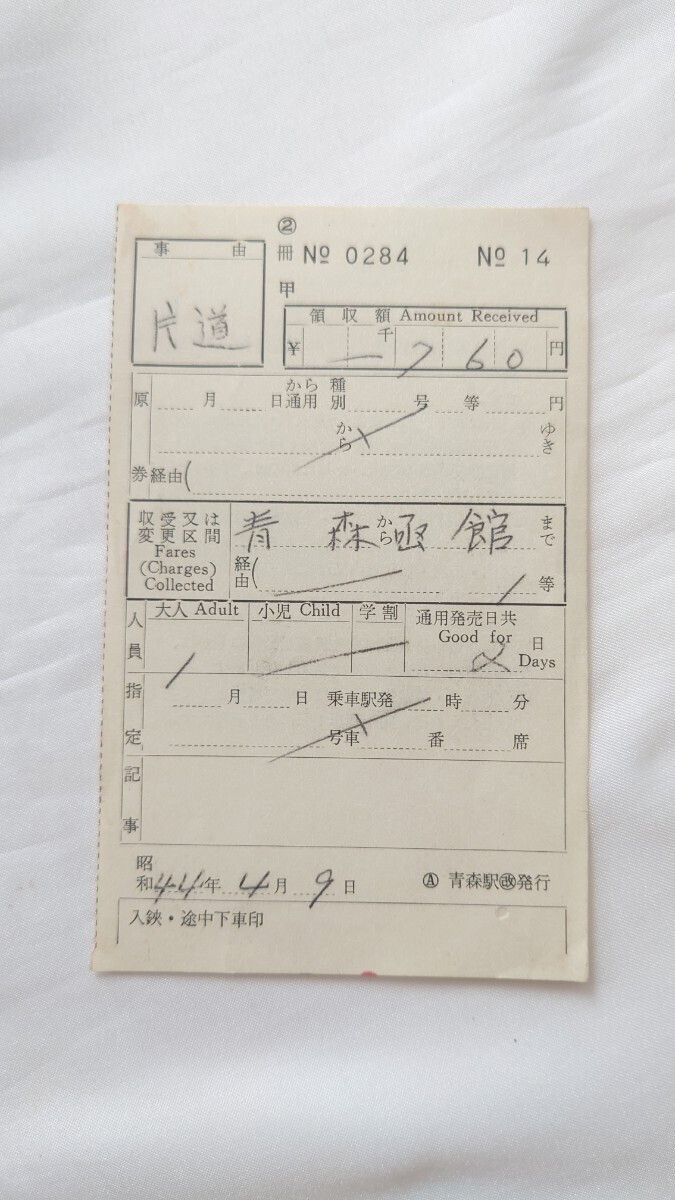 ②
事由
冊 № 0284 № 14
甲
片道
領収額 Amount Received
千
¥ 一 7 6 0 円
原券
月 日から通用 種別 号 等 円
から ゆき
経由(
収受又は変更区間
Fares
(Charges)
Collected
青森から函館まで
経由( 1等
人員
大人 Adult 小児 Child 学割 通用発売日共
Good for 日
1 2 Days
指定
月 日 乗車駅発 時 分
号車 番 席
記事
昭和44年4月9日 Ⓐ 青森駅改発行
入鋏・途中下車印